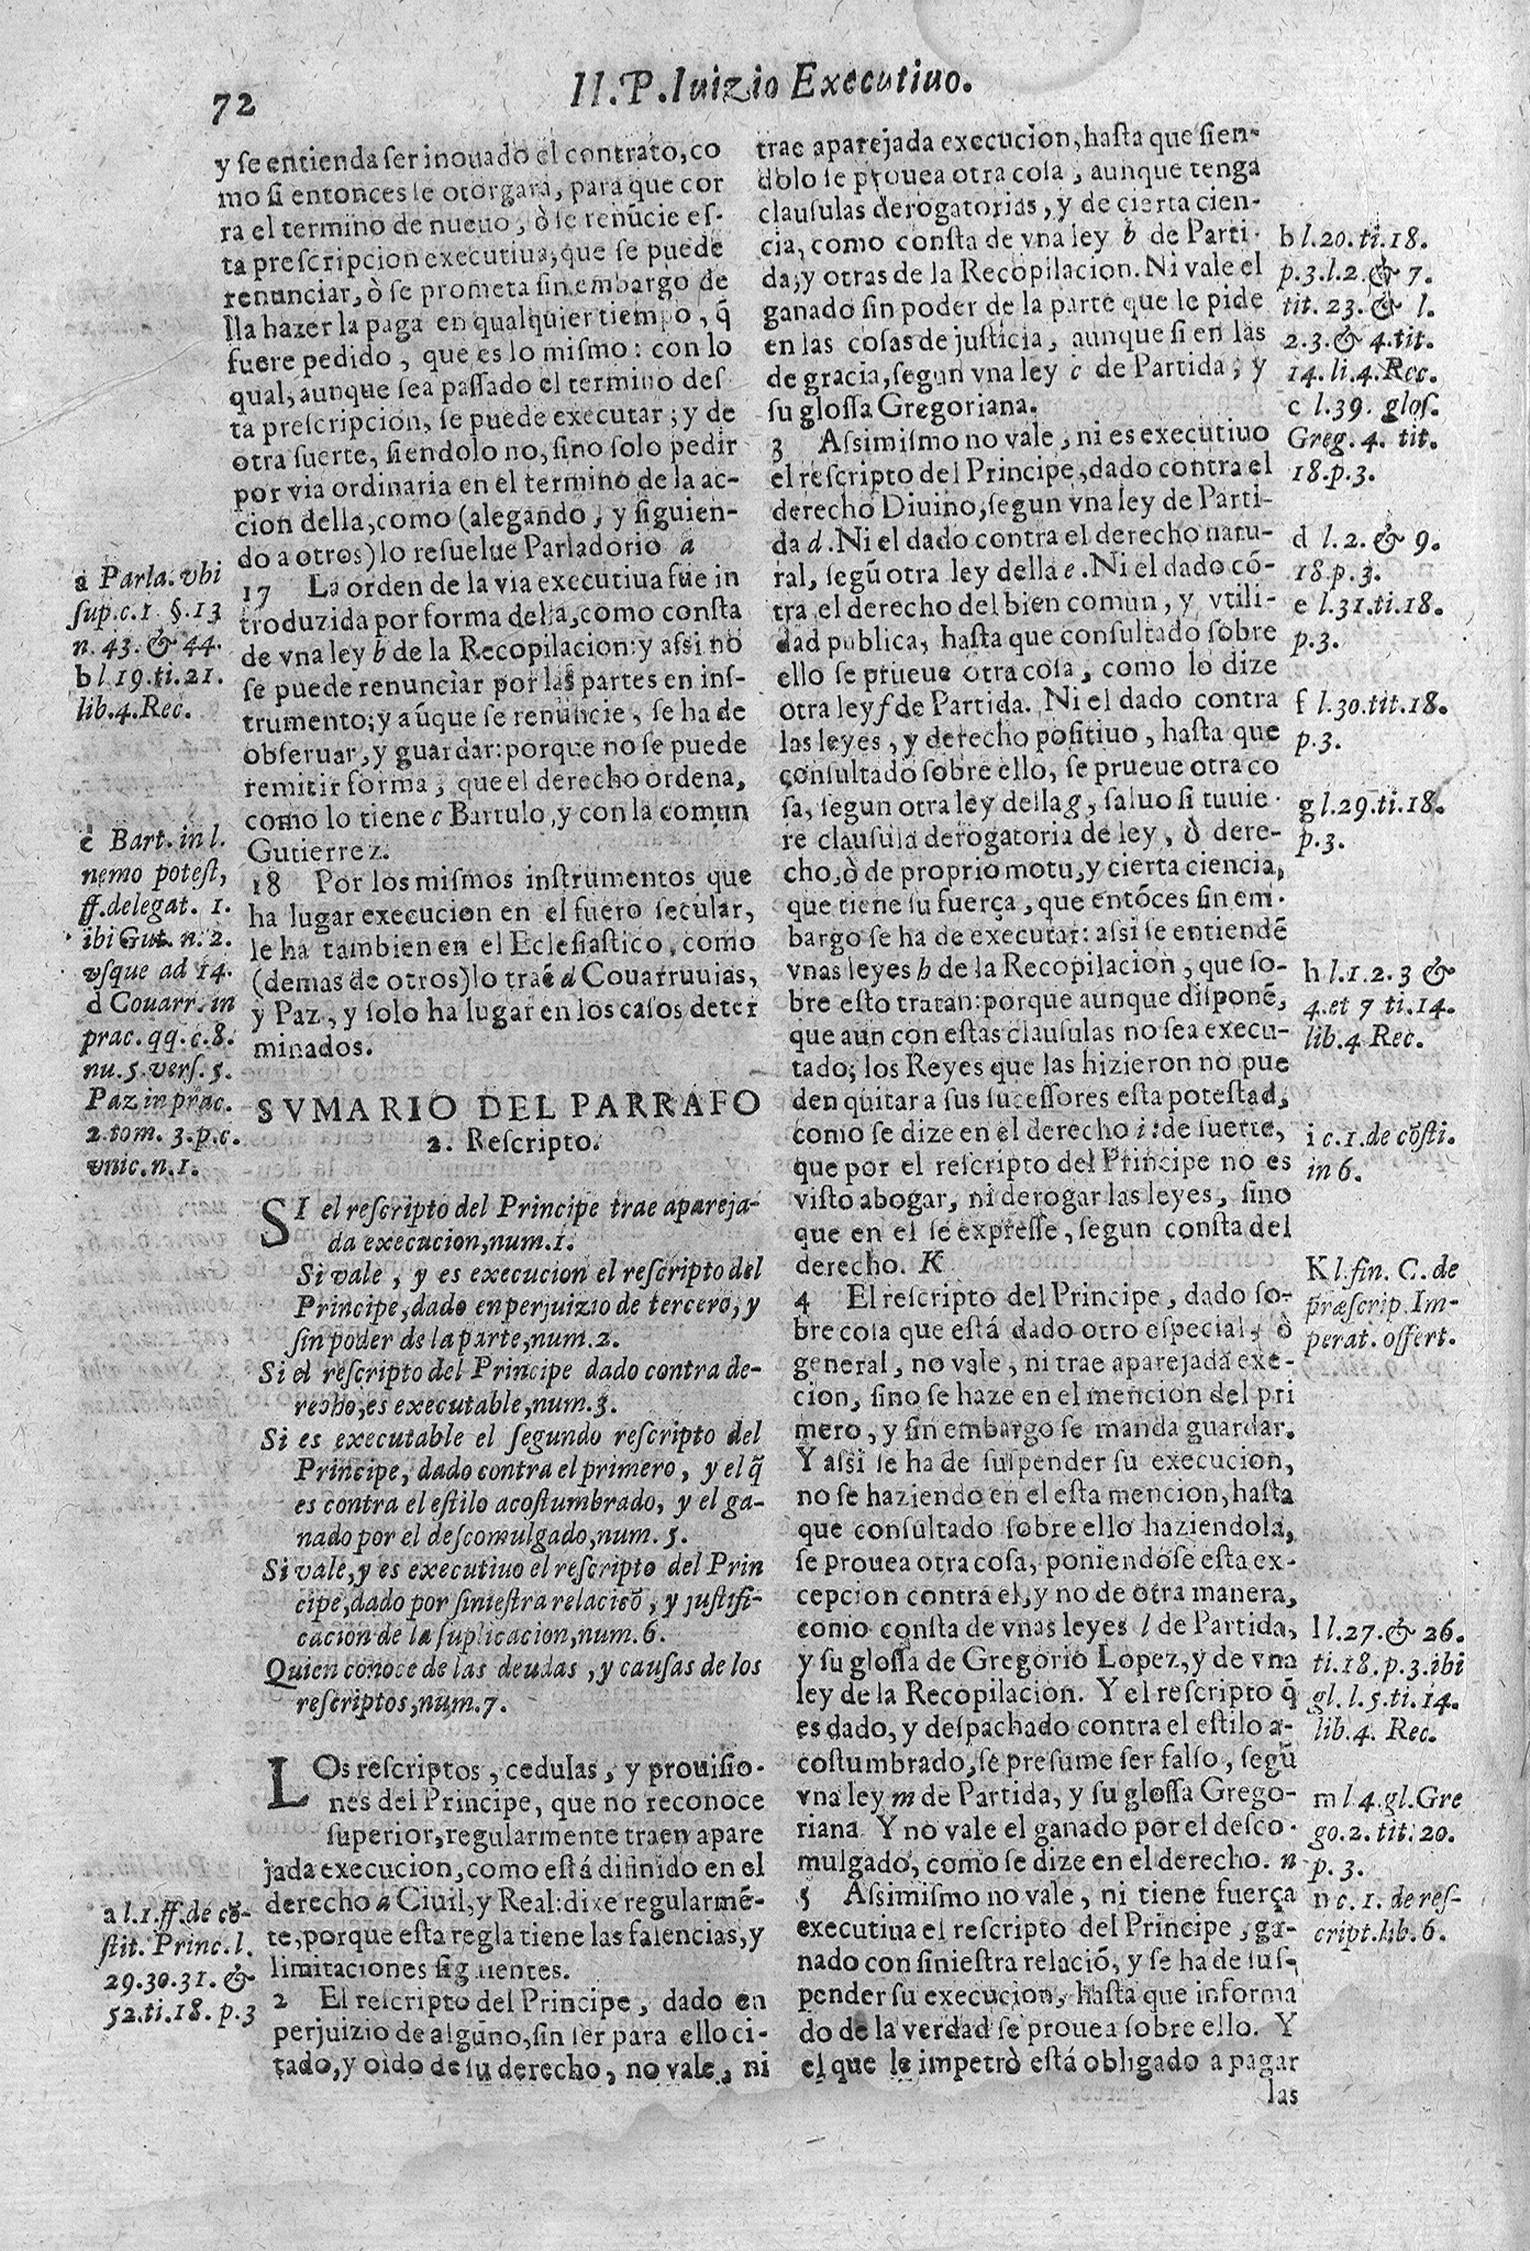 72
II. P. Iuizio Executiuo.
y se entienda ser inouado el contrato, co
mo si entonces se otorgara, para que cor
ra el termino de nueuo, ò se renũcie es-
ta prescripcion executiua, que se puede
renunciar, ò se prometa sin embargo de
lla hazer la paga en qualquier tiempo, q̃
fuere pedido, que es lo mismo: con lo
qual, aunque sea passado el termino des
ta prescripcion, se puede executar; y de
otra suerte, siendolo no, sino solo pedir
por via ordinaria en el termino de la ac-
cion della, como (alegando, y siguien-
do a otros) lo resuelue Parladorio a
17 La orden de la via executiua fue in
troduzida por forma della, como consta
de vna ley b de la Recopilacion: y assi no
se puede renunciar por las partes en ins-
trumento; y aũque se renuncie, se ha de
obseruar, y guardar: porque no se puede
remitir forma, que el derecho ordena,
como lo tiene c Bartulo, y con la comun
Gutierrez.
18 Por los mismos instrumentos que
ha lugar execucion en el fuero secular,
le ha tambien en el Eclesiastico, como
(demas de otros) lo traẽ d Couarruuias,
y Paz, y solo ha lugar en los casos deter
minados.
a Parla. vbi
sup. c. 1 §. 13
n. 43. & 44.
b l. 19. ti. 21.
lib. 4. Rec.
c Bart. in l.
nemo potest,
ff. delegat. 1.
ibi Gut. n. 2.
vsque ad 14.
d Couarr. in
prac. qq. c. 8.
nu. 5. vers. 5.
Paz in prac.
2. tom. 3. p. c.
vnic. n. 1.
SVMARIO DEL PARRAFO
2. Rescripto.
SI el rescripto del Principe trae apareja-
da execucion, num. 1.
Si vale, y es execucion el rescripto del
Principe, dado en perjuizio de tercero, y
sin poder de la parte, num. 2.
Si el rescripto del Principe dado contra de-
recho, es executable, num. 3.
Si es executable el segundo rescripto del
Principe, dado contra el primero, y el q̃
es contra el estilo acostumbrado, y el ga-
nado por el descomulgado, num. 5.
Si vale, y es executiuo el rescripto del Prin
cipe, dado por siniestra relaciõ, y justifi-
cacion de la suplicacion, num. 6.
Quien conoce de las deudas, y causas de los
rescriptos, num. 7.
LOs rescriptos, cedulas, y prouisio-
nes del Principe, que no reconoce
superior, regularmente traen apare
jada execucion, como está difinido en el
derecho a Ciuil, y Real: dixe regularmẽ-
te, porque esta regla tiene las falencias, y
limitaciones siguientes.
2 El rescripto del Principe, dado en
perjuizio de alguno, sin ser para ello ci-
tado, y oido de su derecho, no vale, ni
a l. 1. ff. de cõ-
stit. Princ. l.
29. 30. 31. &
52. ti. 18. p. 3
trae aparejada execucion, hasta que sien-
dolo se prouea otra cosa, aunque tenga
clausulas derogatorias, y de cierta cien-
cia, como consta de vna ley b de Parti-
da, y otras de la Recopilacion. Ni vale el
ganado sin poder de la parte que le pide
en las cosas de justicia, aunque si en las
de gracia, segun vna ley c de Partida, y
su glossa Gregoriana.
3 Assimismo no vale, ni es executiuo
el rescripto del Principe, dado contra el
derecho Diuino, segun vna ley de Parti-
da d. Ni el dado contra el derecho natu-
ral, segũ otra ley della e. Ni el dado cõ-
tra el derecho del bien comun, y vtili-
dad publica, hasta que consultado sobre
ello se prueue otra cosa, como lo dize
otra ley f de Partida. Ni el dado contra
las leyes, y derecho positiuo, hasta que
consultado sobre ello, se prueue otra co
sa, segun otra ley della g, saluo si tuuie-
re clausula derogatoria de ley, ò dere-
cho, ò de proprio motu, y cierta ciencia,
que tiene su fuerça, que entõces sin em-
bargo se ha de executar: assi se entiendẽ
vnas leyes h de la Recopilacion, que so-
bre esto tratan: porque aunque disponẽ,
que aun con estas clausulas no sea execu-
tado; los Reyes que las hizieron no pue
den quitar a sus sucessores esta potestad,
como se dize en el derecho i: de suerte,
que por el rescripto del Principe no es
visto abogar, ni derogar las leyes, sino
que en el se expresse, segun consta del
derecho. K
4 El rescripto del Principe, dado so-
bre cosa que está dado otro especial, ò
general, no vale, ni trae aparejada exe-
cion, sino se haze en el mencion del pri
mero, y sin embargo se manda guardar.
Y assi se ha de suspender su execucion,
no se haziendo en el esta mencion, hasta
que consultado sobre ello haziendola,
se prouea otra cosa, poniendose esta ex-
cepcion contra el, y no de otra manera,
como consta de vnas leyes l de Partida,
y su glossa de Gregorio Lopez, y de vna
ley de la Recopilacion. Y el rescripto q̃
es dado, y despachado contra el estilo a-
costumbrado, se presume ser falso, segũ
vna ley m de Partida, y su glossa Grego-
riana. Y no vale el ganado por el desco-
mulgado, como se dize en el derecho. n
5 Assimismo no vale, ni tiene fuerça
executiua el rescripto del Principe, ga-
nado con siniestra relaciõ, y se ha de sus-
pender su execucion, hasta que informa
do de la verdad se prouea sobre ello. Y
el que le impetrò está obligado a pagar
las
b l. 20. ti. 18.
p. 3. l. 2. & 7.
tit. 23. & l.
2. 3. & 4. tit.
14. li. 4. Rec.
c l. 39. glos.
Greg. 4. tit.
18. p. 3.
d l. 2. & 9.
18. p. 3.
e l. 31. ti. 18.
p. 3.
f l. 30. tit. 18.
p. 3.
g l. 29. ti. 18.
p. 3.
h l. 1. 2. 3 &
4. et 7 ti. 14.
lib. 4 Rec.
i c. 1. de cõsti.
in 6.
K l. fin. C. de
præscrip. Im-
perat. offert.
l l. 27. & 26.
ti. 18. p. 3. ibi
gl. l. 5. ti. 14.
lib. 4. Rec.
m l 4. gl. Gre
go. 2. tit. 20.
p. 3.
n c. 1. de res-
cript. lib. 6.